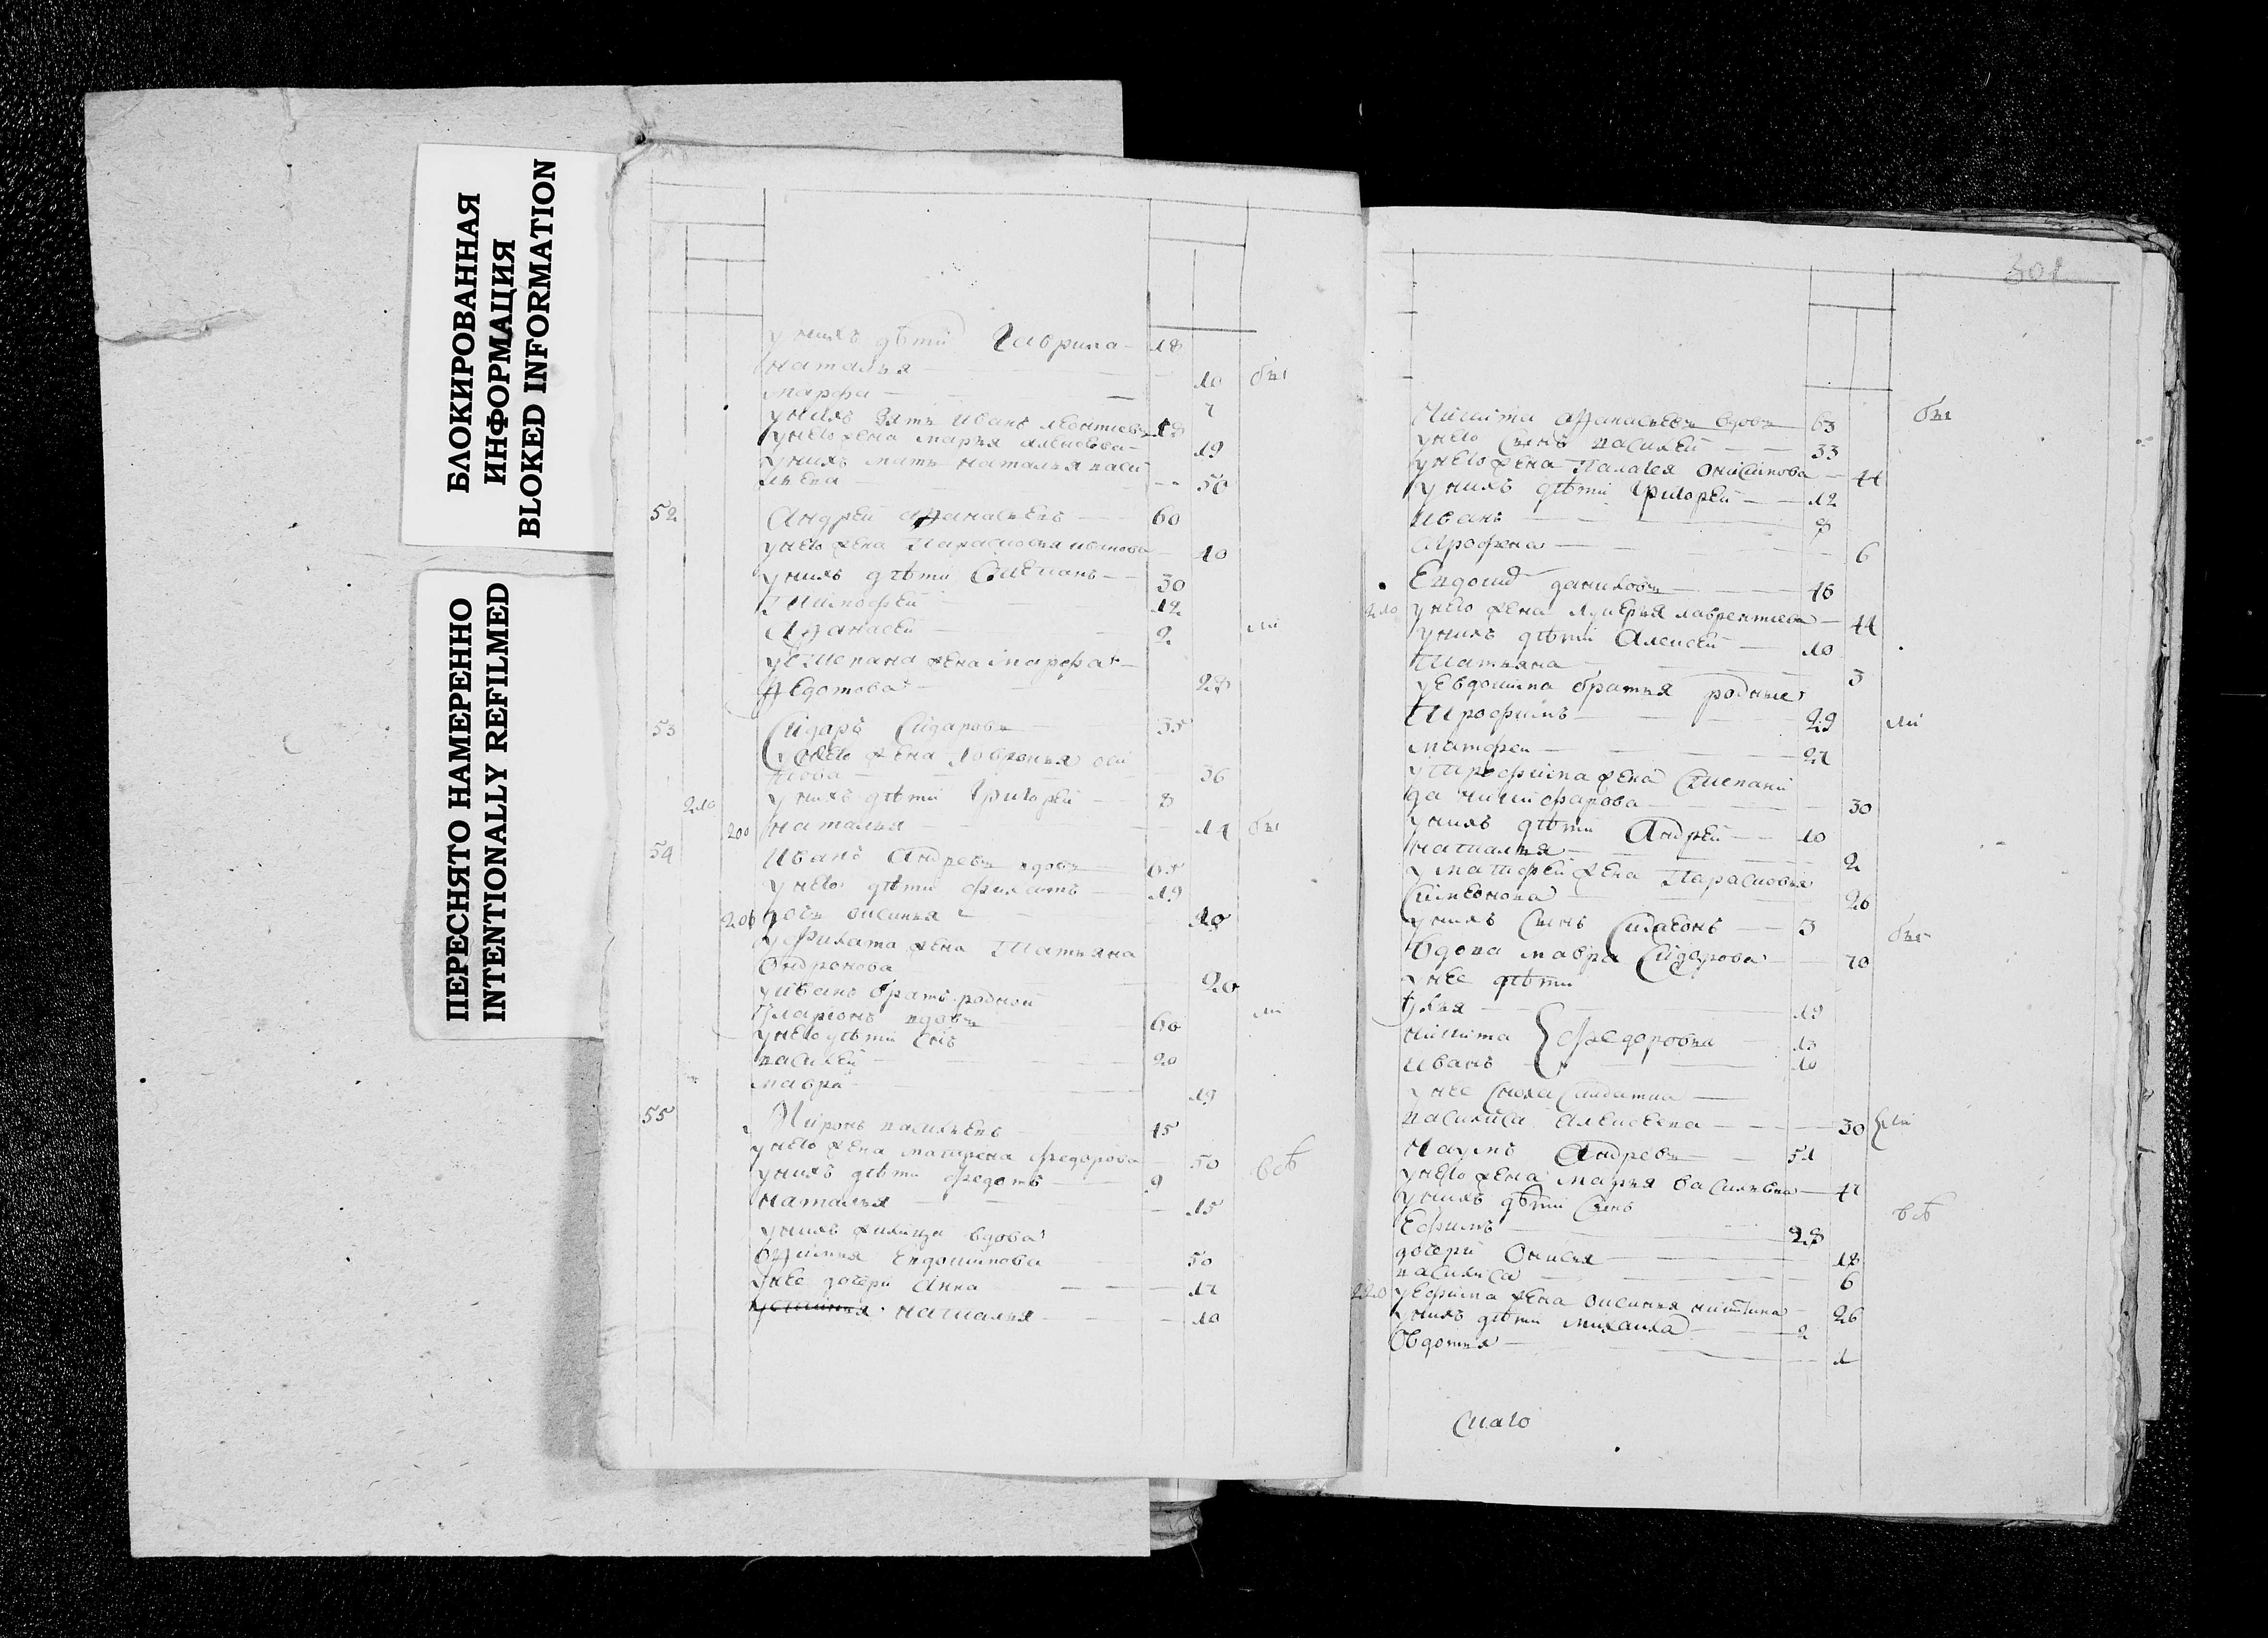 БЛОКИРОВАННАЯ
ИНФОРМАЦИЯ
BLOKED INFORMATION
ПЕРЕСНЯТО НАМЕРЕННО
INTENTIONALLY REFILMED
у нихъ дѣти Гаврила 18
наталья 10
марфа 7
у нихъ зять иванъ леонтиевъ 18
у него жена марья 19
у нихъ мать наталья васи
льева 50
52 Андрей афанасьевъ 60
у него жена Парасковья 40
у нихъ дѣти Степанъ 30
Тимофей 12
Афанасей 2
у Степана жена марфа
Федотова 28
53 Сидаръ Сидаровъ 35
у него жена
36
210 у нихъ дѣти Григорей 8
200 наталья 14
54 Иванъ Андреевъ вдовъ 65
у него дѣти филатъ 19
дочь оксинья
у Филата жена Татьяна
Ондронова 20
у ивана братъ родной
Иларионъ вдовъ 60
у него дѣти снъ
василей 20
мавра 19
55 Миронъ васильевъ 45
у него жена матрена федорова 50
у нихъ дѣти федотъ 9
наталья 15
у нихъ жилица вдова
Офимья Евдокимова 50
у нее дочери Анна 17
наталья 10
301
Никита афанасьевъ вдовъ 63
у него сынъ василей 33
у него жена Палагея онисимова 44
у нихъ дѣти Григорей 12
иванъ 8
Агрофена 6
Евдокимъ даниловъ 46
210 у него жена лукерья лаврентиева 44
у нихъ дѣти Алексей 10
Татьяна 3
у Евдокима братья родные
Трофимъ 29
матфеи 27
у Трофима жена Степани
да никифорова 30
у нихъ дѣти Андрей 10
наталья 2
у матфея жена Парасковья
Симеонова 20
у нихъ сынъ 3
вдова мавра Сидорова 70
у нее дѣти
Илья 19
никита } Федоровы 13
иванъ 10
у нее сноха Салдатка
василиса алексеева 30
Наумъ Андреевъ 51
у него жена марья васильева 47
у нихъ дѣти сынъ
Ефимъ 28
дочери Онисья 18
василиса 6
220 у ефима жена оксинья никитина 26
у нихъ дѣти михаила 2
Овдотья 1